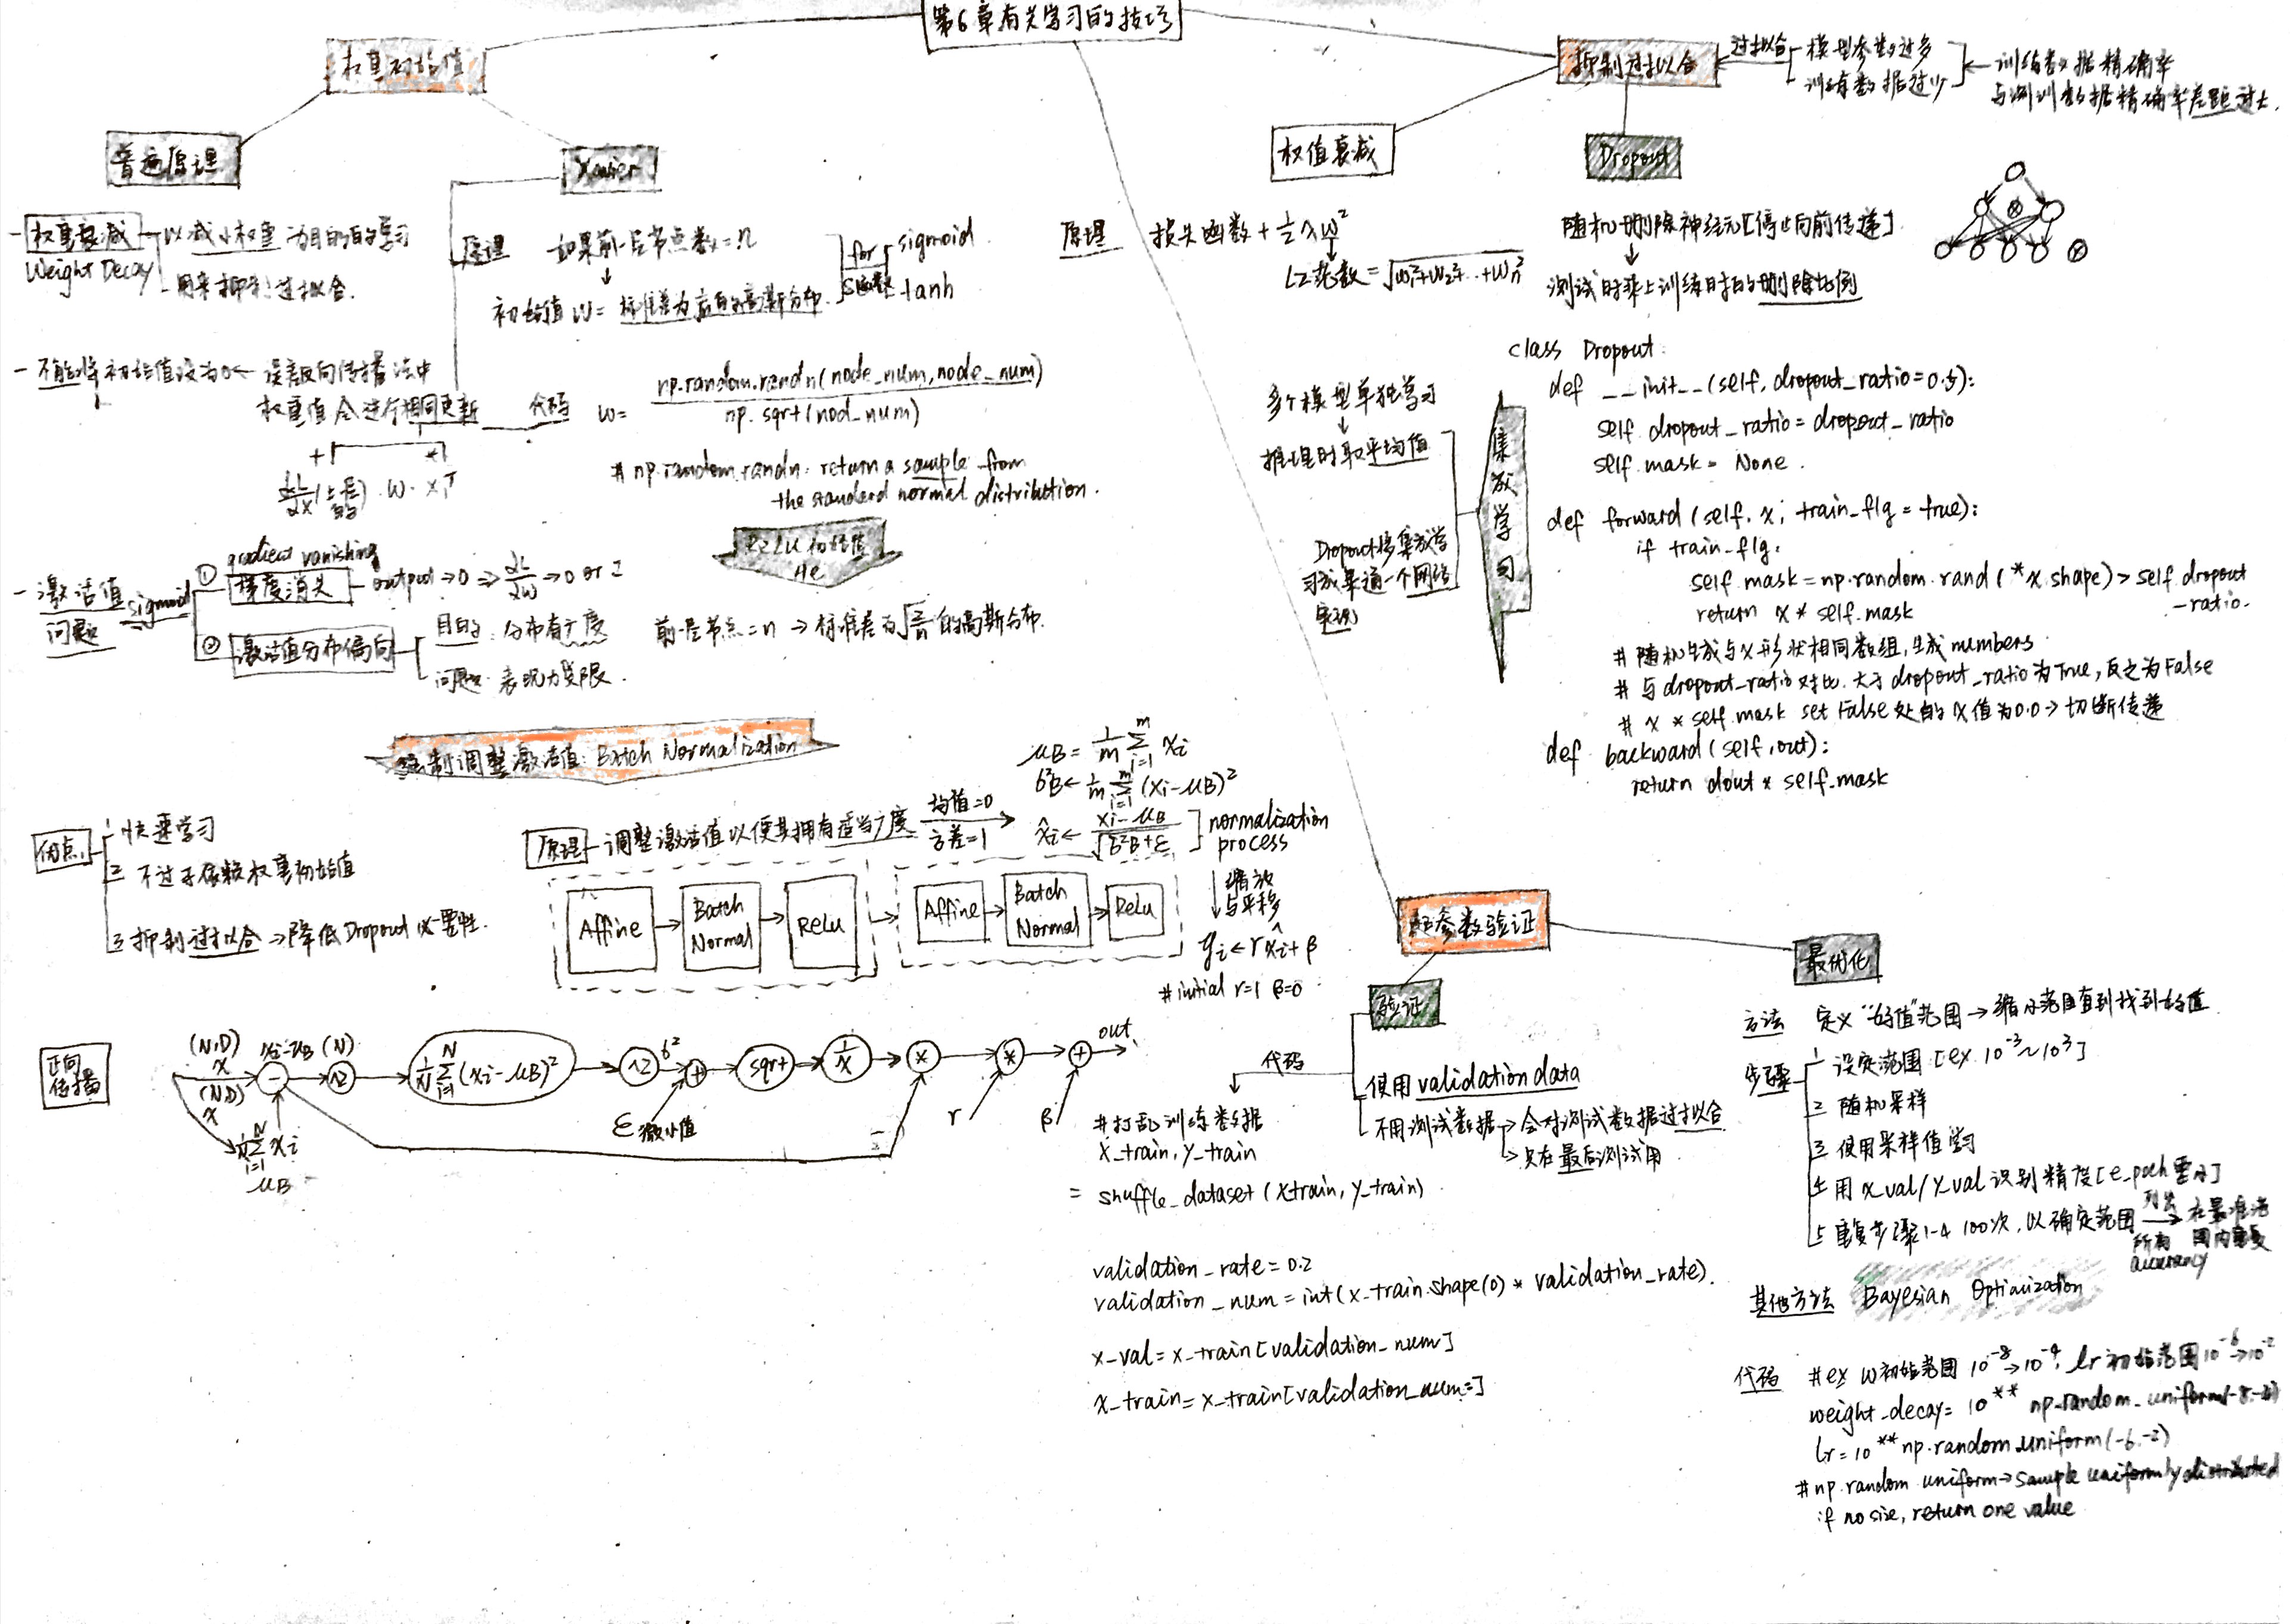 第6章有关学习的技巧
权重初始值
普遍原理
Xavier
权重衰减
Weight Decay
以减小权重为目的的学习
用来抑制过拟合.
- 不能将初始值设为0 ← 误差反向传播法中
权重值会进行相同更新
- 激活值
问题
sigmoid
① gradient vanishing
梯度消失
output→0 ⇒ →0 or 1
② 激活值分布偏向
目的: 分布有广度
问题: 表现力受限.
原理 如果前一层节点数=n
↓
初始值 W= 标准差为 的高斯分布.
for
S函数
sigmoid
tanh
代码 W= np.random.randn(node_num, node_num)
np.sqrt(nod_num)
# np.random.randn: return a sample from
the standerd normal distribution.
ReLU初始值
He
前一层节点=n → 标准差为√2/n 的高斯分布.
强制调整激活值: Batch Normalization
优点
1 快速学习
2 不过于依赖权重初始值
3 抑制过拟合→降低Dropout必要性.
原理 调整激活值以使其拥有适当广度
均值=0
方差=1
μB = 1/m Σ xi
m
i=1
б²B ← 1/m Σ (xi-μB)²
m
i=1
x̂i ← xi-μB
√б²B+ε
normalization
process
↓ 缩放
与平移
yi ← r x̂i + β
# initial r=1 β=0
Affine → Batch Normal → ReLu → Affine → Batch Normal → ReLu
正向
传播
(N,D)
x
xi-μB (N)
(N,D)
x
1/N Σ xi
N
i=1
μB
-
^2
1/N Σ (xi-μB)²
N
i=1
^2
б²
+
sqrt
1/x
*
*
+
out
ε 微小值
r
β
抑制过拟合
过拟合
模型参数过多
训练数据过少
← 训练数据精确率
与测训数据精确率差距过大.
权值衰减
原理 损失函数 + ½λW²
↓
L2范数 = √W₁²+W₂²+..+Wn²
Dropout
随机删除神经元[停止向前传递]
↓
测试时乘上训练时的删除比例
集成学习
多个模型单独学习
↓
推理时取平均值
Dropout将集成学
习成果通一个网络
实现
class Dropout:
def __init__(self, dropout_ratio=0.5):
self.dropout_ratio = dropout_ratio
self.mask = None.
def forward(self, x, train_flg = true):
if train_flg:
self.mask = np.random.rand(*x.shape) > self.dropout
-ratio.
return x * self.mask
# 随机生成与x形状相同数组, 生成numbers
# 与dropout_ratio对比. 大于dropout_ratio为True, 反之为False
# x * self.mask set False处的x值为0.0→切断传递
def backward(self, out):
return dout * self.mask
超参数验证
验证
使用validation data
不用测试数据 → 会对测试数据过拟合
→ 只在最后测试用
代码
# 打乱训练数据
x_train, y_train
= shuffle_dataset (x train, y_train)
validation_rate = 0.2
validation_num = int(x_train.shape(0) * validation_rate).
x_val = x_train[validation_num]
x_train = x_train[validation_num:]
最优化
方法 定义“好值”范围→缩小范围直到找到好值
步骤
1 设定范围 [ex. 10⁻³~10³]
2 随机采样
3 使用采样值学习
4 用x_val/y_val识别精度[e_poch要小]
5 重复步骤1-4 100次, 以确定范围
所有
accuracy
其他方法 Bayesian Optimization
代码 #ex W初始范围 10⁻⁸→10⁻⁴, lr初始范围10⁻⁶→10⁻²
weight_decay = 10** np.random.uniform(
lr = 10** np.random.uniform(-6,-2)
# np.random uniform → sample uniformly distributed
if no size, return one value